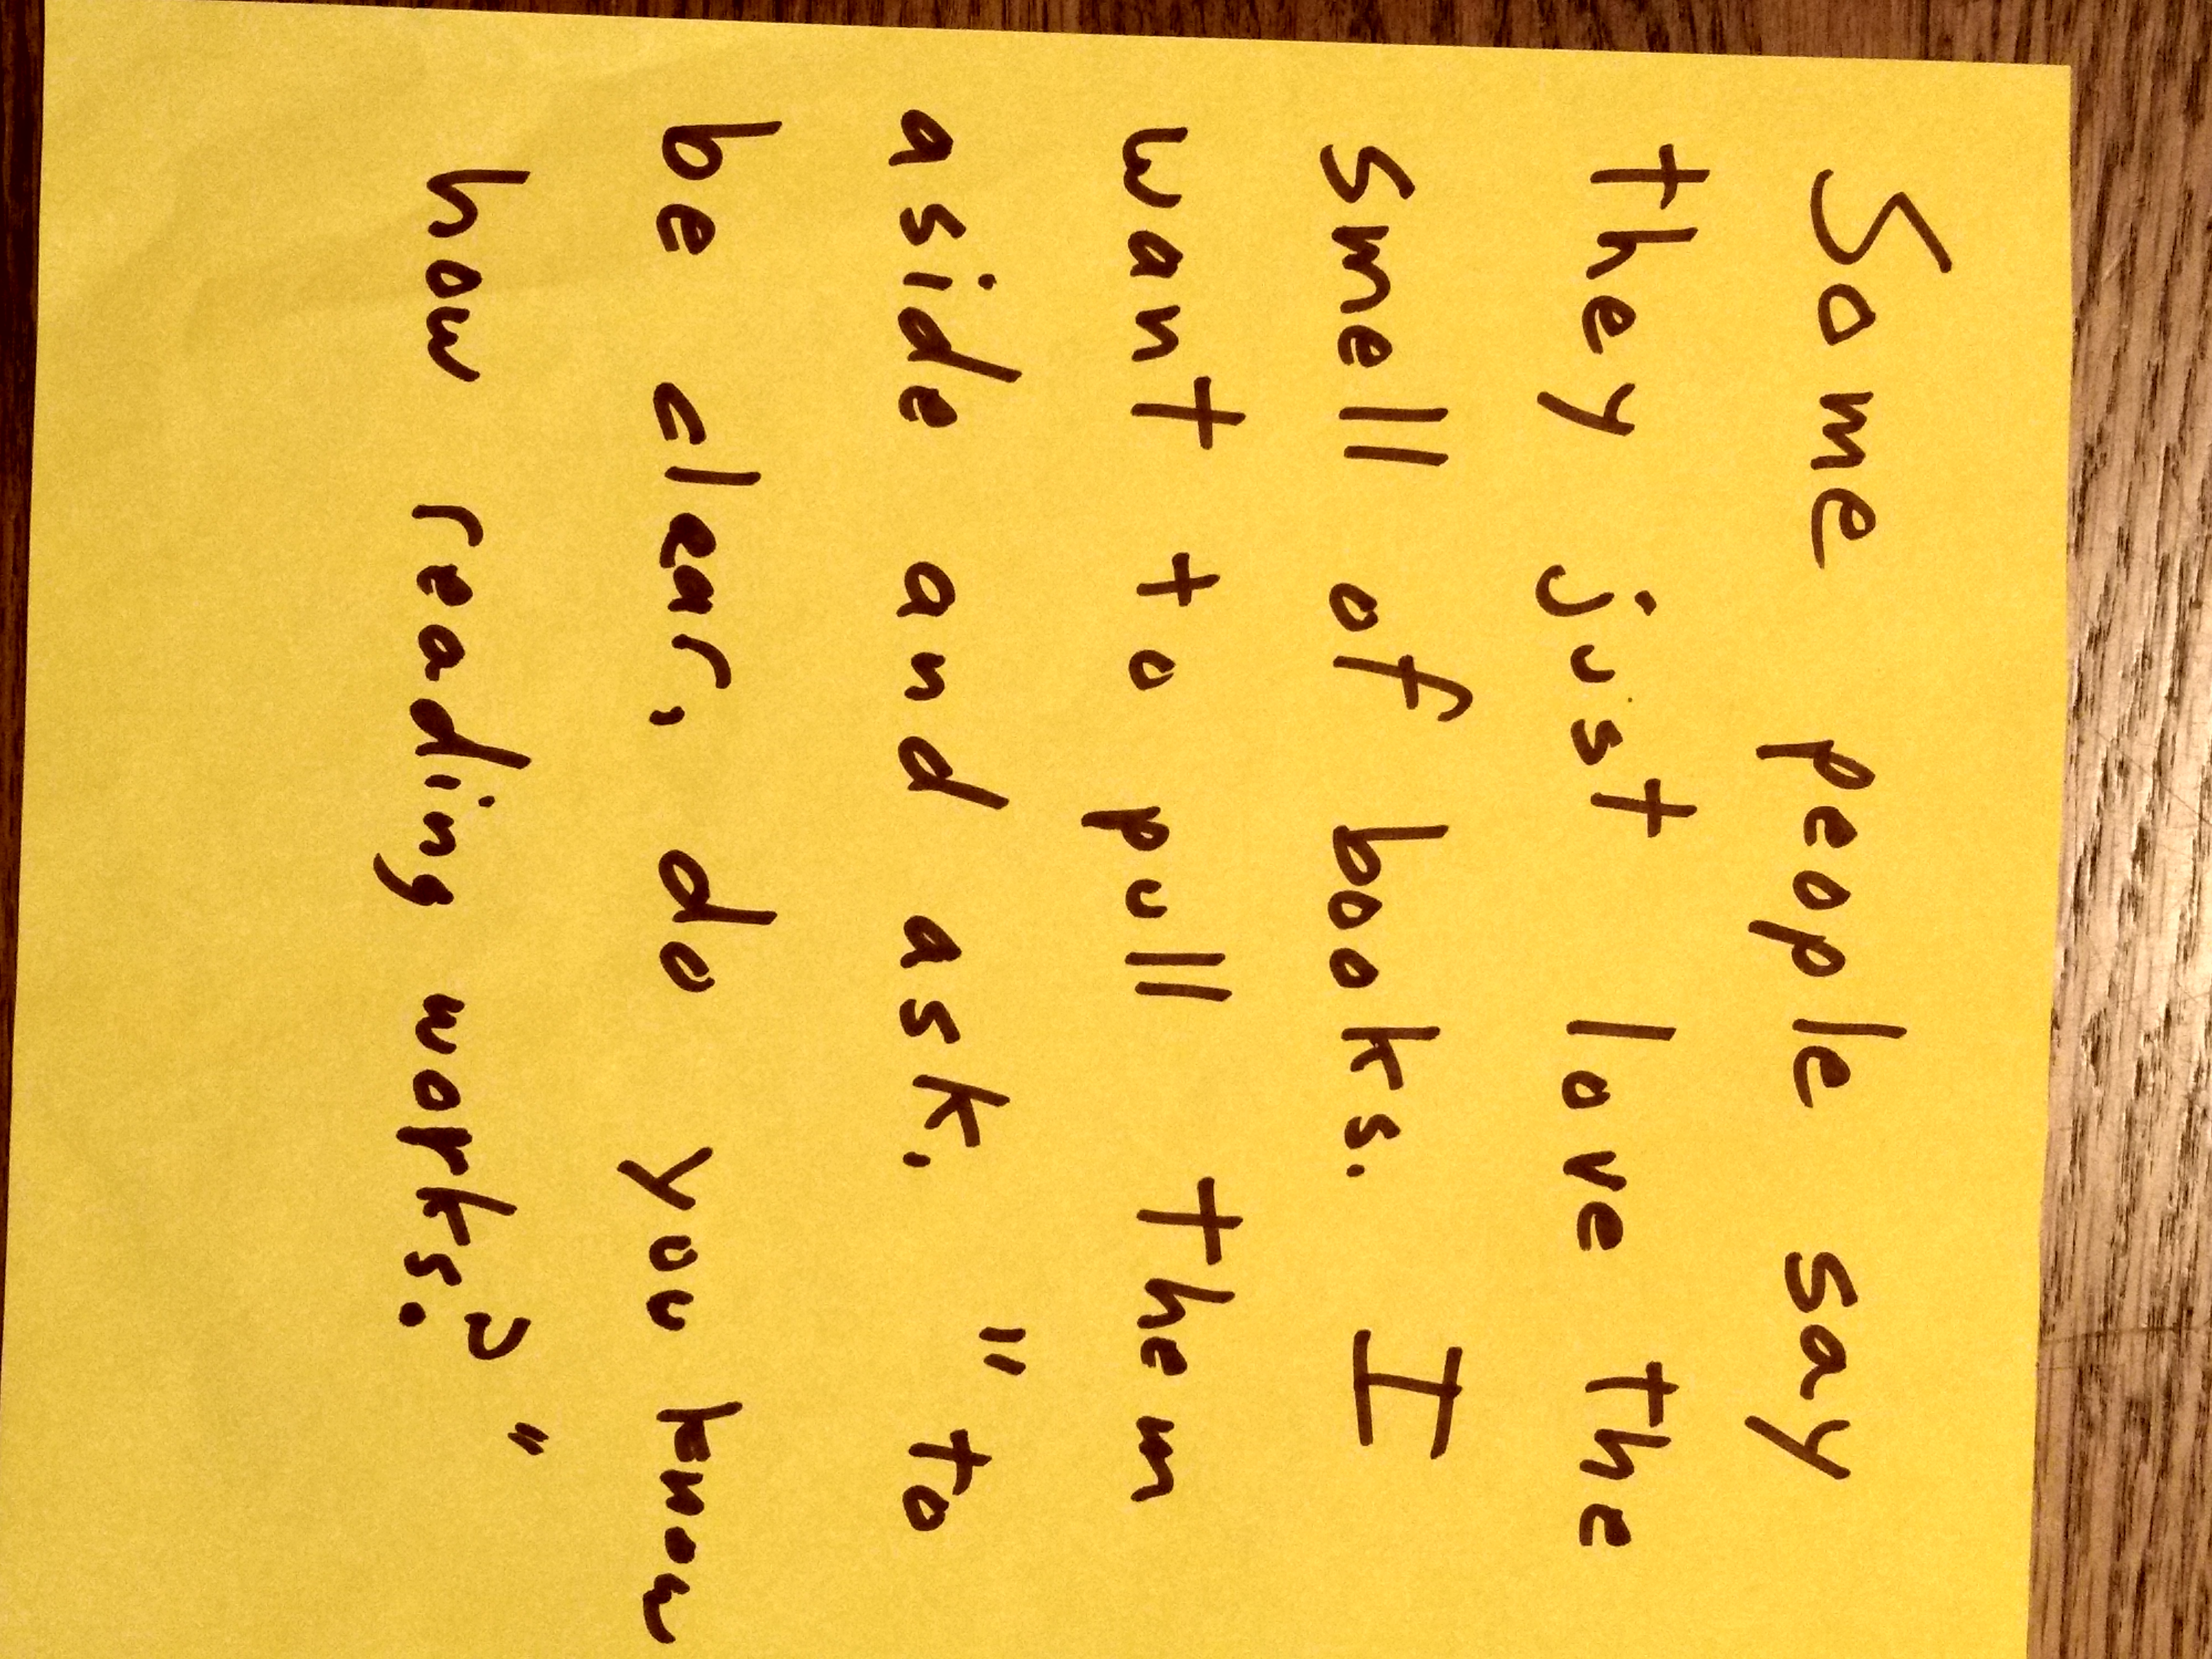 Some people say
they just love the
smell of books. I
want to pull them
aside and ask, "to
be clear, do you know
how reading works?"